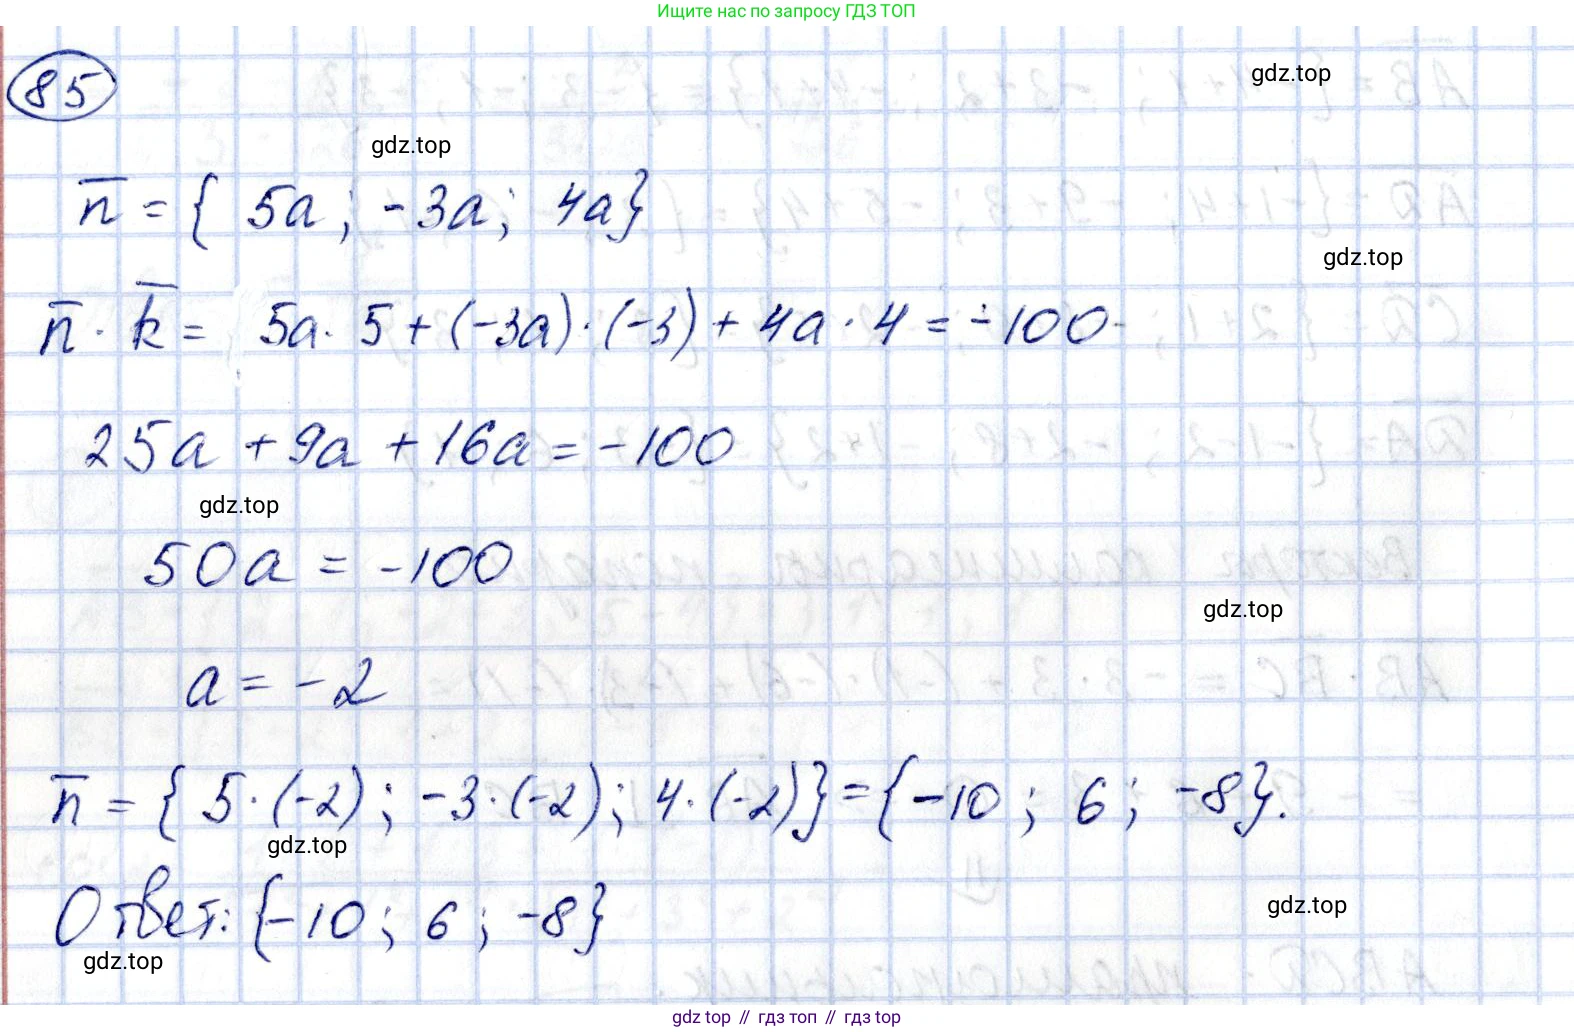 Ищите нас по запросу ГДЗ ТОП
85
gdz.top
gdz.top
n̅ = { 5a ; -3a ; 4a}
gdz.top
n̅ · k̅ = 5a · 5 + (-3a) · (-3) + 4a · 4 = -100
25a + 9a + 16a = -100
gdz.top
50a = -100
gdz.top
a = -2
n̅ = { 5 · (-2) ; -3 · (-2) ; 4 · (-2)} = {-10 ; 6 ; -8}.
gdz.top
Ответ: {-10 ; 6 ; -8}
gdz.top
gdz.top
gdz top // гдз топ // gdz top